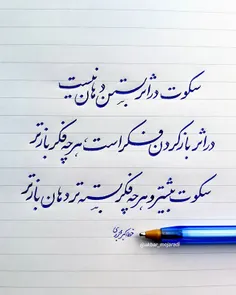 سکوت در اثر بستن دهان نیست
در اثر باز کردن فکر است، هرچه فکر بازتر
سکوت بیشتر و هرچه فکر بسته تر دهان بازتر
@akbar_mojaradi